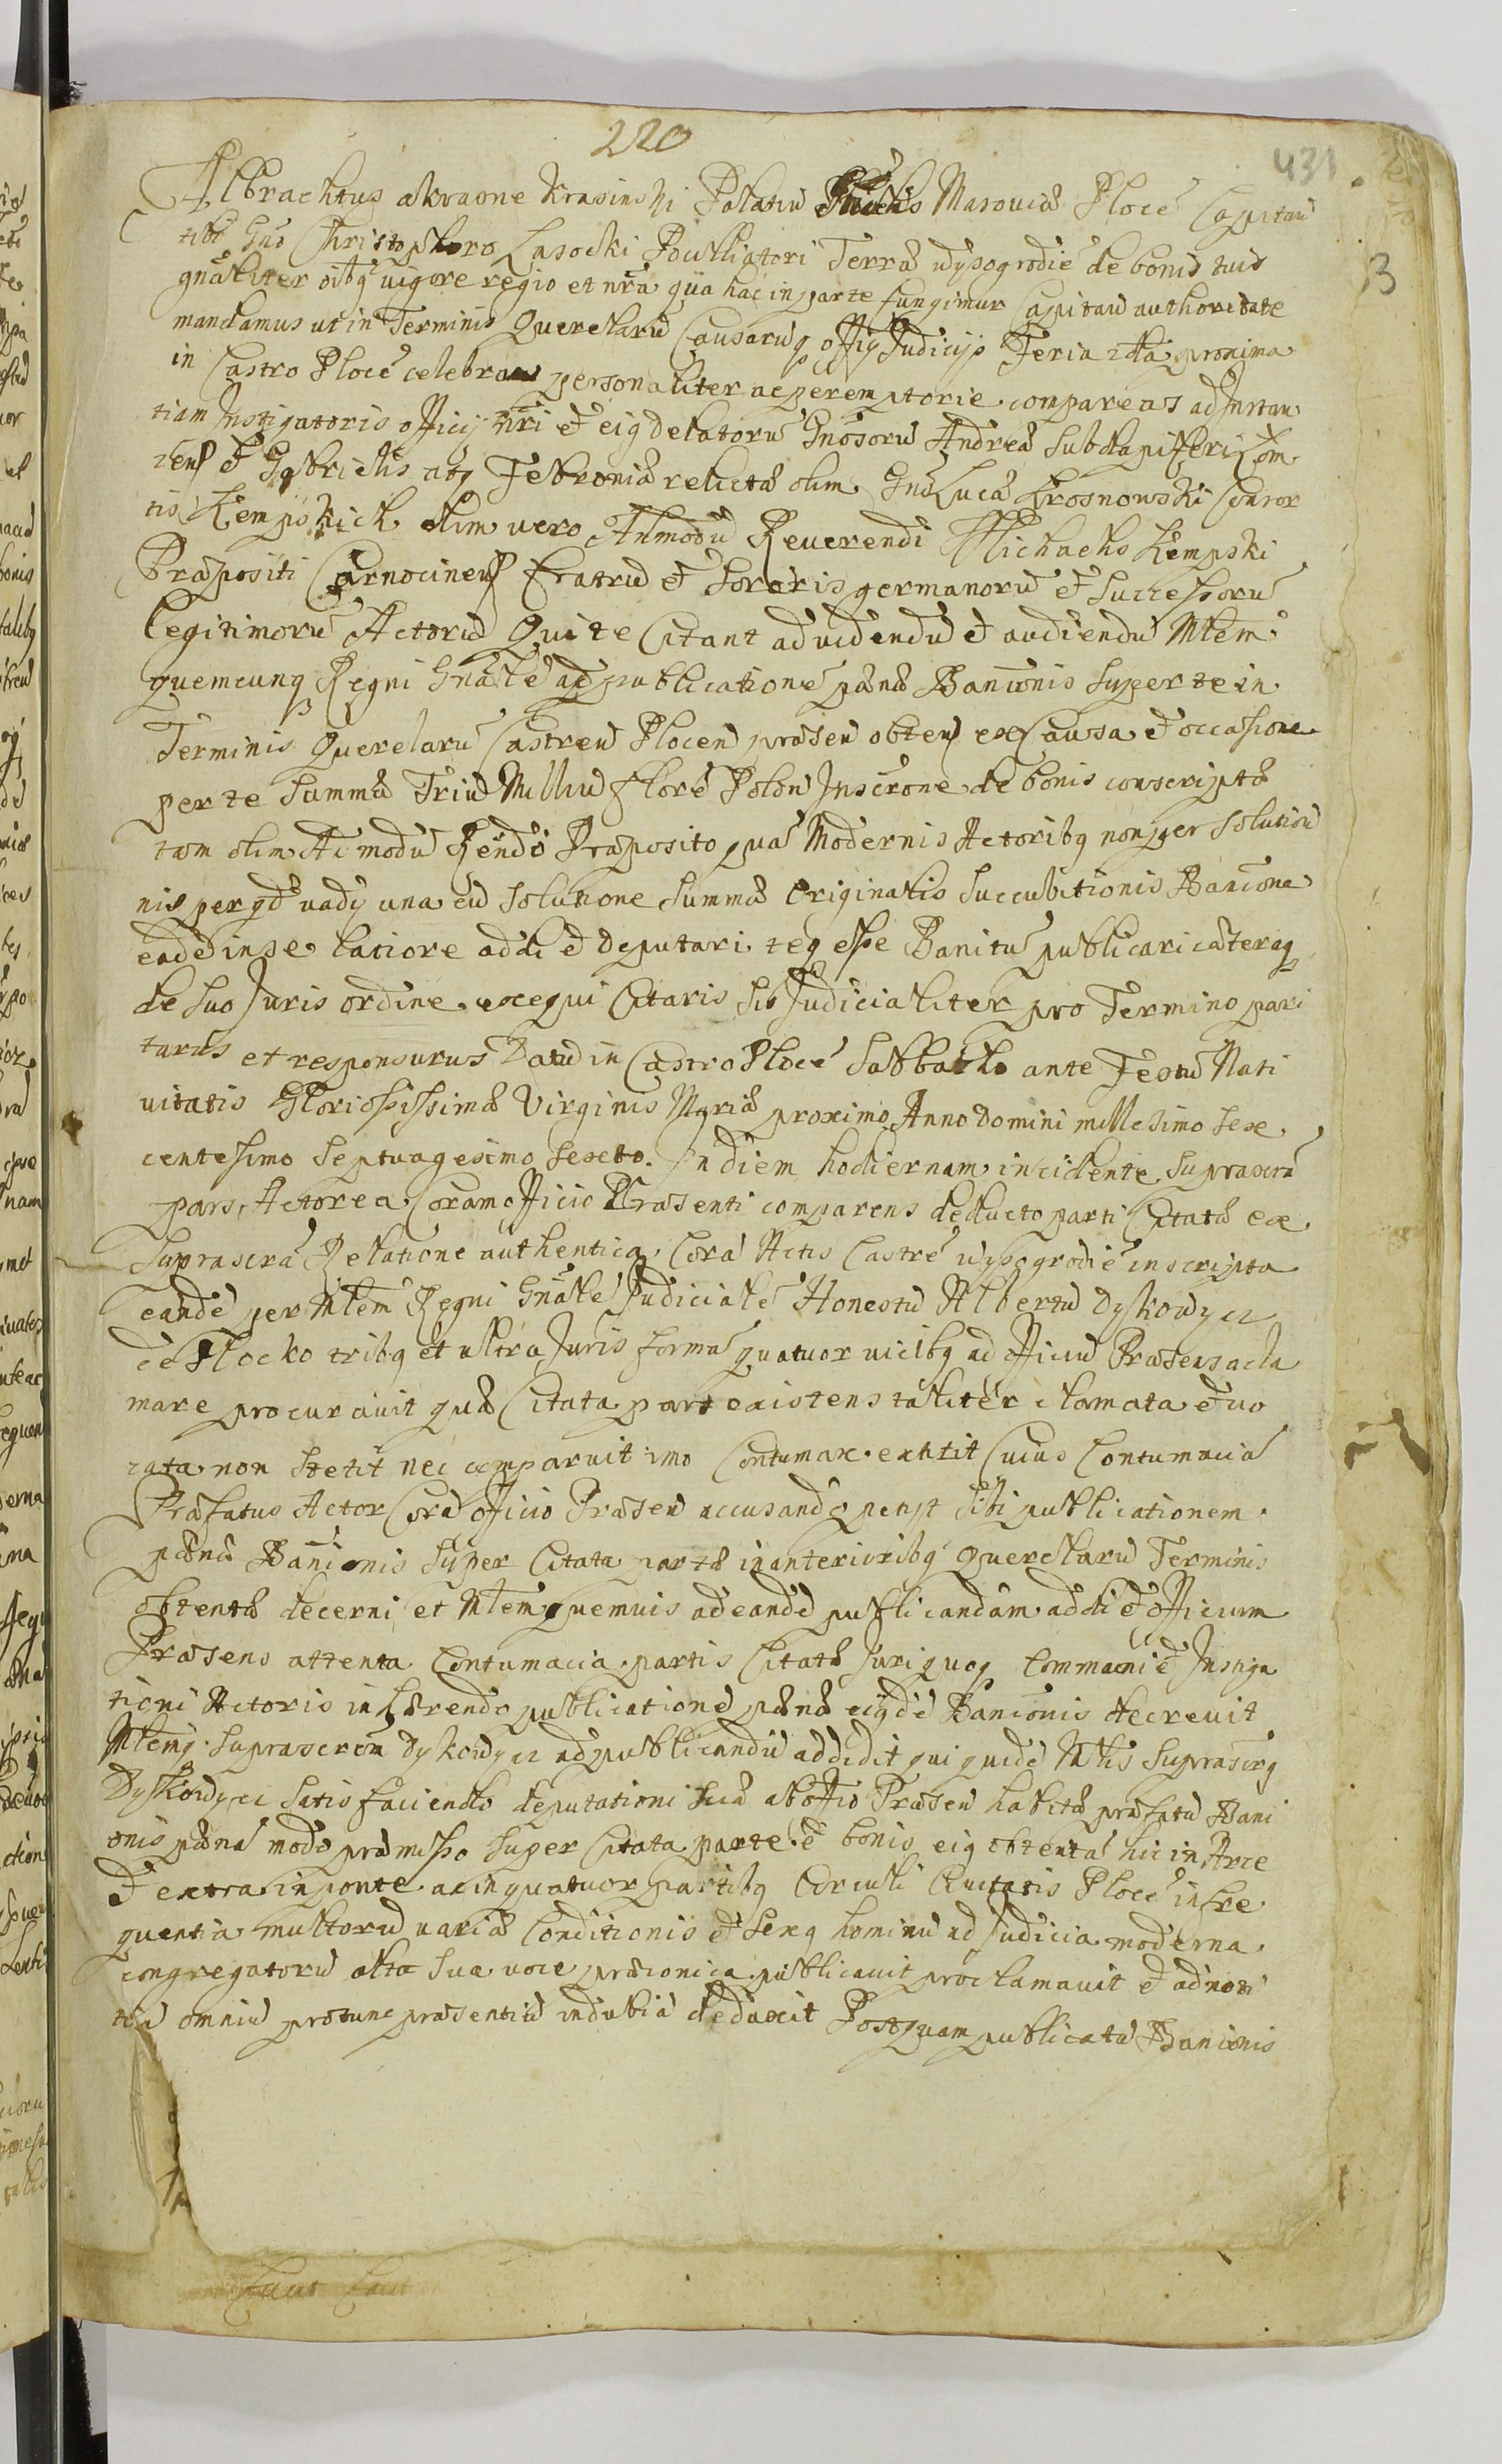 220
431
3
Albrachtus a Krasne Krasinski Palatin Masouiæ Ploce Capitan
tibi Gnō Christophoro Lasocki Pocillatori Terræ Wyszogrodie de bonis tuis
gnāliter oībq uigore regio et nrā qua hac in parte fungimur Capitan authoritate
mandamus ut in Terminis Querelarū Causarūq offij Judicijs Feria 2da proxima
in Castro Ploce celebran personaliter ac peremptorie compareas ad Instan
tiam Instigatoris officij nrī et eiq delatorū Gnōsorū Andreæ Subdapiferi Zom
zen et Gabrielis atq Febroniæ relictæ olim Gnō Lucæ Krosnowski Consor
tis Kempskich olim uero Admodū Reuerendi Michaelis Kempski
Præpositi Carnocinen fratrū et Sororis germanorū et Successorū
legitimorū Actorū Qui te Citant ad uidendū et audiendū Mlēm
quemcunq Regni Gnāle ad publicationē pœnæ Banionis super te in
Terminis Querelarū Castren Plocen præsen obten ex Causa et occasione
per te Summæ Triū Milliū flore Polon Inscrone de bonis conscriptæ
tam olim Admodū Rendo Præposito quā Modernis Actoribq non per Solution
nis per qd uady una cū Solutione Summæ Originalis Succubitionis Banione
eadē in se latiore addi et deputari teq esse Banitū publicari cæteraq
de suo Juris ordine exequi Citaris sis Judicialiter pro Termino pari
turus et responsurus Datū in Castro Ploce Sabbatho ante Festū Nati
uitatis Gloriosissimæ Virginis Mariæ proximo Anno Domini millesimo sex
centesimo Septuagesimo Sexto. In diem hodiernam incidente suprascrā
pars Actorea Coram officio Præsenti comparens deducto parti Citatæ ex
Suprascrā Relatione authentica Corā Actis Castre Wyszogrodie inscripta
eandē per Mlēm Regni Gnāle Judicialē Honestū Albertū Dyskowycz
de Plocko tribq et ultra Juris formā quatuor uicibq ad officiū Præsens acla
mare procurauit quæ Citata pars existens taliter clamata et uo
cata non stetit nec comparuit imo Contumax extitit Cuius Contumaciā
Præfatus Actor Corā officio Præsen accusando petyt sibi publicationem
pœnæ Banionis super Citata parte in anterioribq Querelarū Terminis
obtentæ decerni et Mlēm quemuis ad eandē publicandam addi et officium
Præsens attenta Contumacia partis Citatæ Juri quoq Communi et Instiga
tioni Actoris inhærendo publicationē pœnæ eiqdē Banionis decreuit
Mlemq Suprascrm Dyskowycz ad publicandū addidit qui quidē Mlis Suprascrq
Dyskowycz satisfaciendo deputationi suæ ab offio Præsen habitæ præfatū Bani
onis pœnā modo præmisso super Citata parte et bonis eiq obtentā hic in Arce
et extra in ponte ac in quatuor partibq Circuli Ciuitatis Ploce in fre
quentia multorū uariæ Conditionis et sexq hominū ad Judicia moderna
congregatorū alta sua uoce præconica publicauit proclamauit et ad noti
tiā omniū protunc præsentiū indubiā deduxit Postquam publicatā Banionis